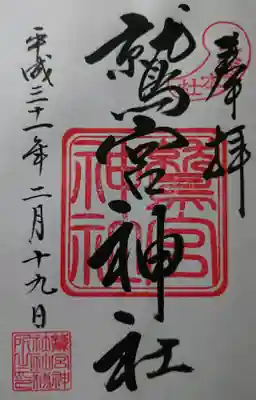 奉拝
鷲宮神社
平成三十一年二月十九日
鷲宮
神社